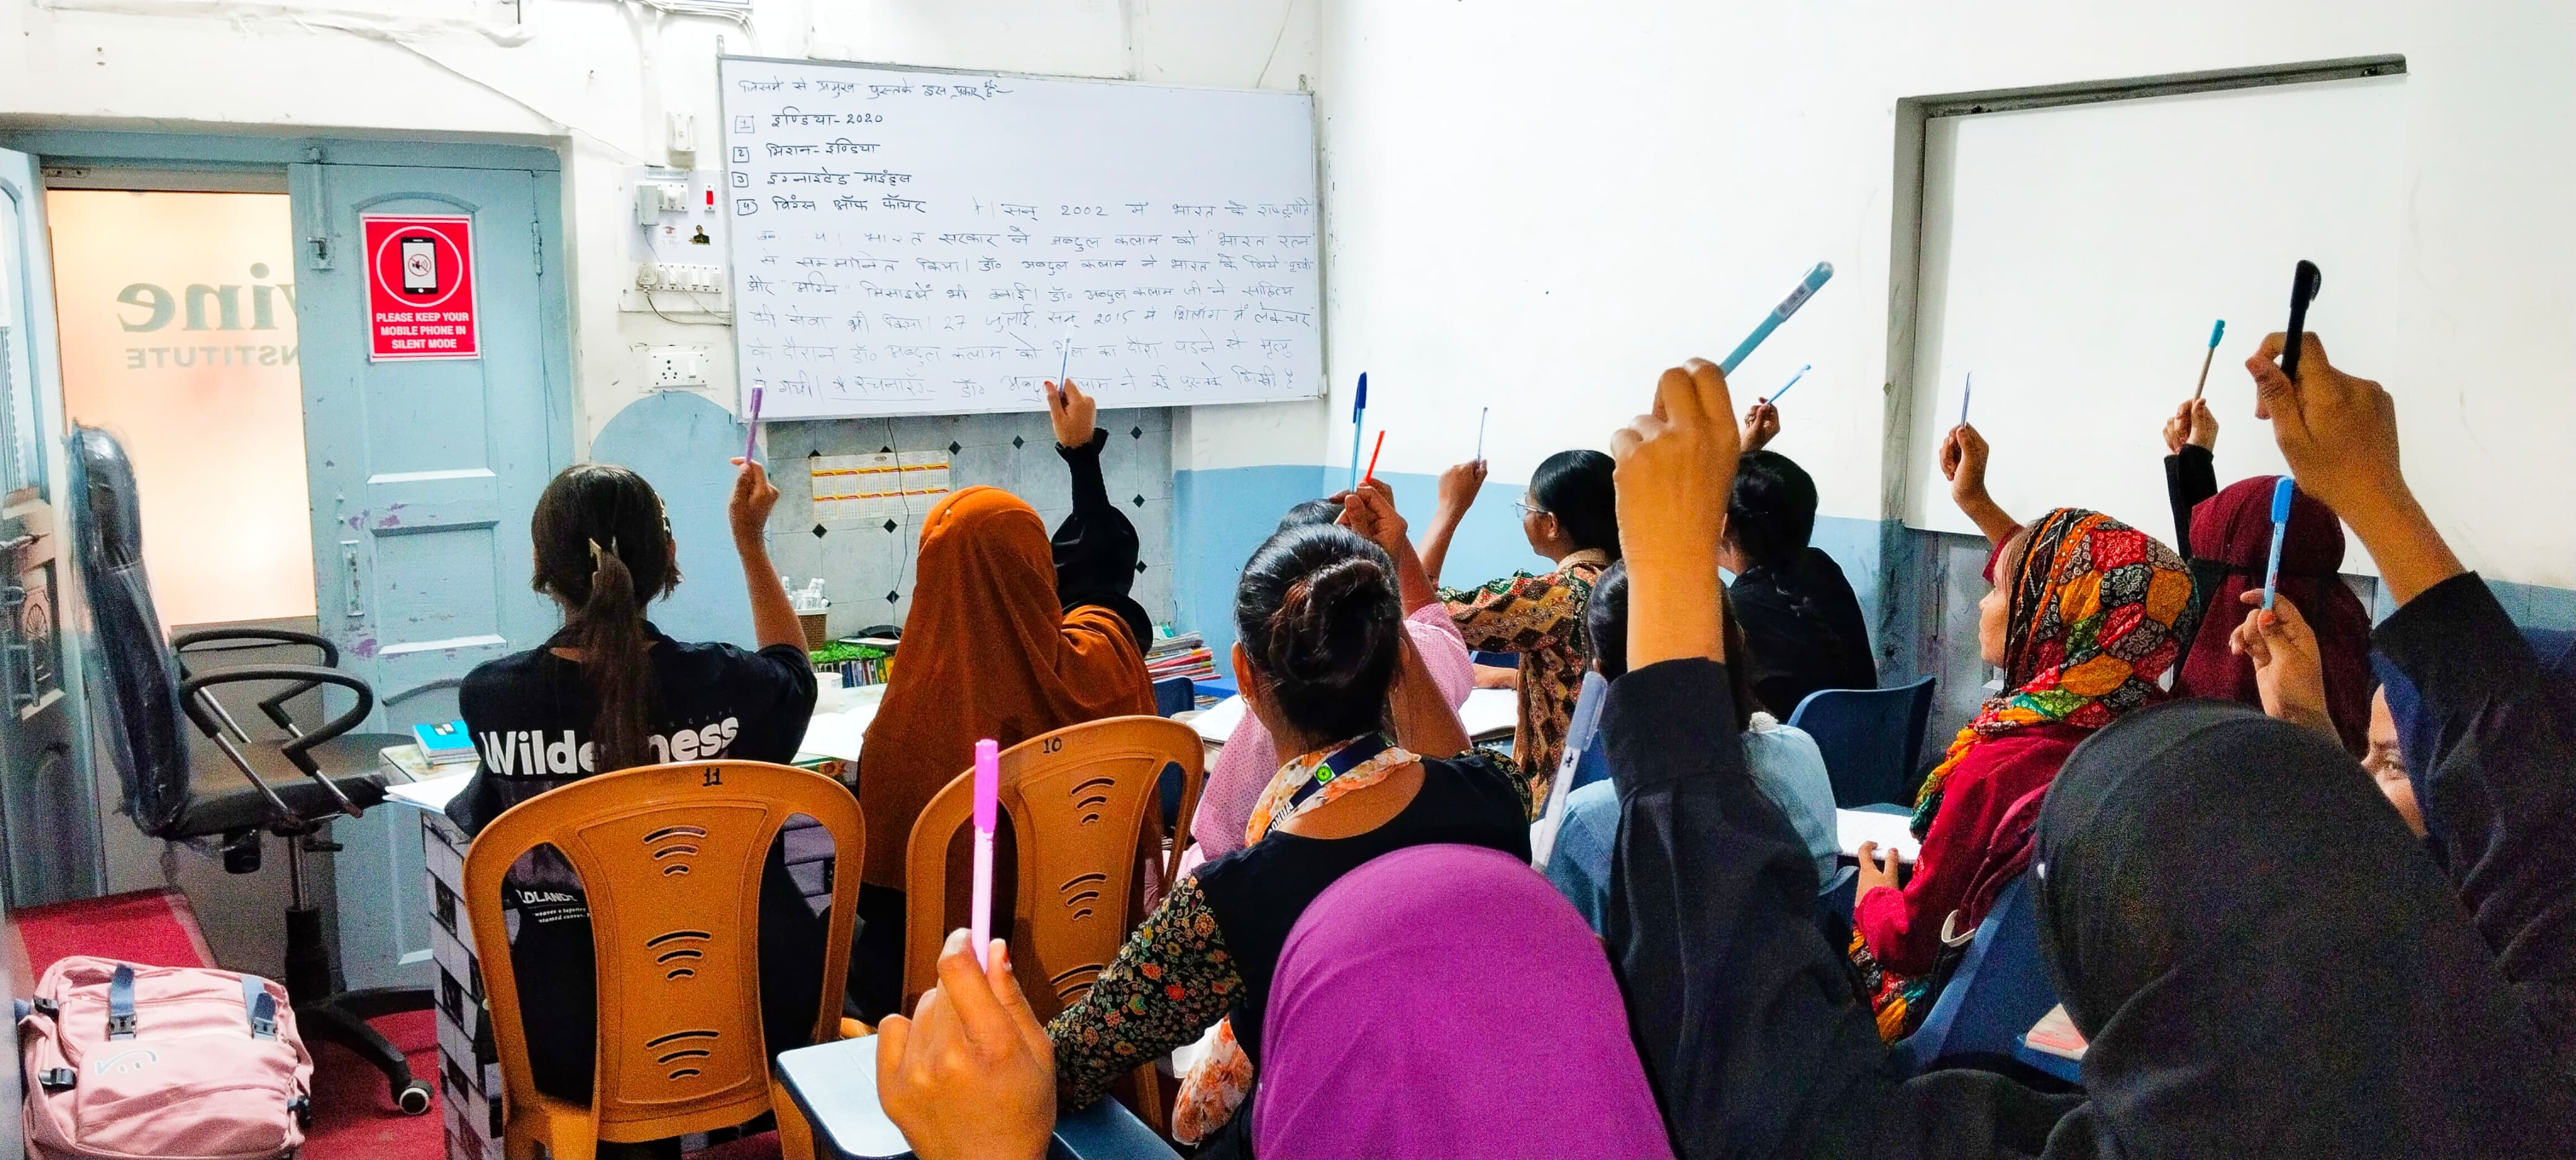 जिसमे से प्रमुख पुस्तके इस प्रकार हैं-
1 इण्डिया-2020
2 मिशन-इण्डिया
3 इग्नाइटेड माइंड्ज
4 विंग्स ऑफ फॉयर
। सन् 2002 में भारत के राष्ट्रपति
भारत सरकार ने अब्दुल कलाम को "भारत रत्न"
से सम्मानित किया। डॉ० अब्दुल कलाम ने भारत के लिये "पृथ्वी"
और "अग्नि" मिसाइलें भी बनाई। डॉ० अब्दुल कलाम जी ने साहित्य
की सेवा भी किया। 27 जुलाई, सन् 2015 में शिलांग में लेक्चर
के दौरान डॉ० अब्दुल कलाम को दिल का दौरा पड़ने से मृत्यु
गयी। * रचनाएँ- डॉ० अब्दुल कलाम ने कई पुस्तके लिखी है
PLEASE KEEP YOUR
MOBILE PHONE IN
SILENT MODE
vine
NSTITUTE
11
10
Wilde ness